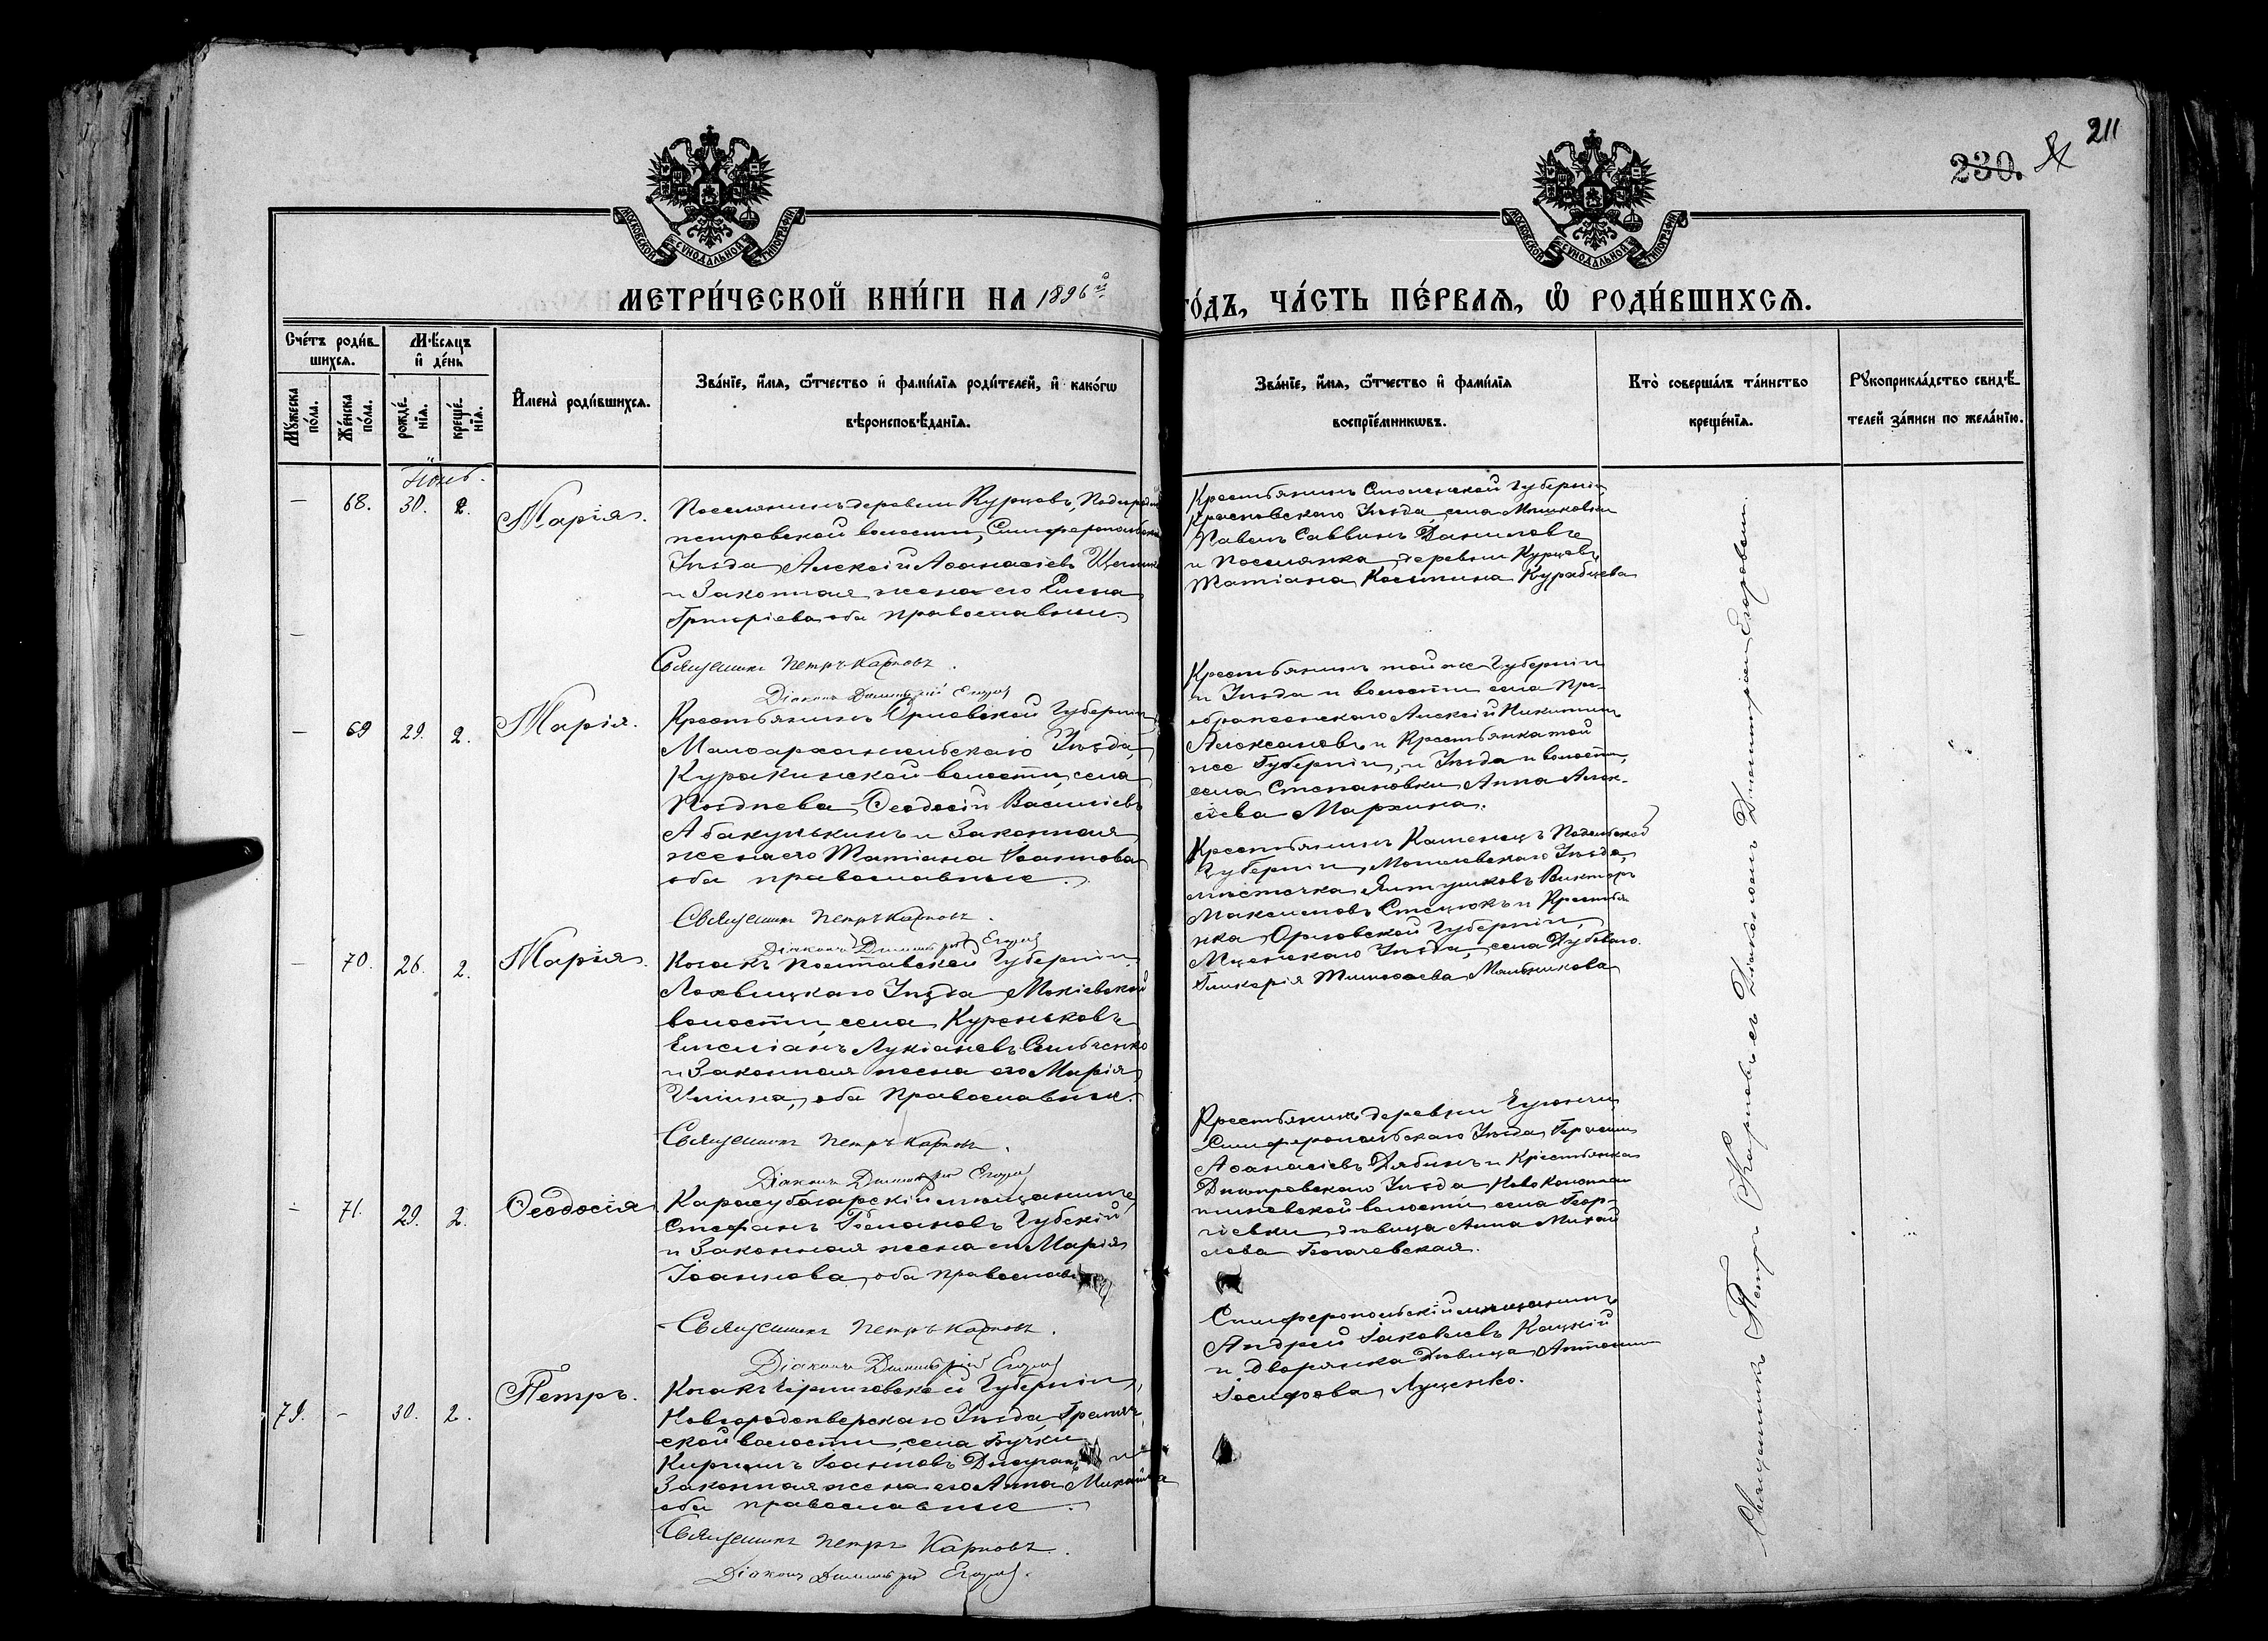 211
230.
МОСКОВСКОЙ СѴНОДАЛЬНОЙ ТИПОГРАФІИ
МОСКОВСКОЙ СѴНОДАЛЬНОЙ ТИПОГРАФІИ
МЕТРИ́ЧЕСКОЙ КНИ́ГИ НА 1896 й
ГО́ДЪ, ЧА́СТЬ ПЕ́РВАѦ, Ѡ҆ РОДИ́ВШИХСѦ.
Сче́тъ роди́в
шихсѧ.
Мꙋ́жеска
по́ла.
Же́нска
по́ла.
Мѣ́сѧцъ
и҆ де́нь
рожде́-
нїѧ.
креще́-
нїѧ.
И҆мена̀ роди́вшихсѧ.
Зва́нїе, и҆́мѧ, ѻ҆́тчество и҆ фами́лїѧ роди́телей, и҆ како́гѡ
вѣроисповѣ́данїѧ.
Зва́нїе, и҆́мѧ, ѻ҆́тчество и҆ фами́лїѧ
воспрїе́мникѡвъ.
Кто̀ соверша́лъ та́инство
креще́нїѧ.
Рꙋкоприкла́дство свидѣ́-
телей за́писи по жела́нїю.
Іюнь.
—
68.
30.
2.
Марія.
Поселянинъ деревни Курцовъ, Подгородне
петровской волости, Симферопольскаго
Уѣзда Алексій Аѳанасіевъ
и Законная жена его Елена
Григоріева оба православные.
Священникъ Петръ Карповъ.
Діаконъ Димитрій Егоровъ
Крестьянинъ Смоленской Губерніи,
Краснов­скаго Уѣзда села
Павелъ Саввинъ Даниловъ
и Поселянка деревни Курцовъ
Татіана Косьмина
—
69
29.
2.
Марія.
Крестьянинъ Орловской Губерніи
Малоархангельскаго Уѣзда,
Куракинской волости, села
Позднева Ѳеодосій Василіевъ
Абакулькинъ и Законная
жена его Татіана Іоаннова
оба православные.
Священникъ Петръ Карповъ.
Діаконъ Димитрій Егоровъ
Крестьянинъ той же Губерніи
и Уѣзда и волости села Пре-
ображенскаго Алексій Никитинъ
и Крестьянка той
же Губерніи, и Уѣзда и волости,
села Степановки Анна Алек-
сіева Мархина.
—
70.
26.
2.
Марія.
Козакъ Полтавской Губерніи,
Лохвицкаго Уѣзда
волости, села Куреньковъ
Емеліанъ Лукіановъ
и Законная жена его Марія
оба Православные.
Священникъ Петръ Карповъ.
Діаконъ Димитрій Егоровъ
Крестьянинъ Каменецъ Подольской
Губерніи, Могилевскаго Уѣзда,
мѣстечка Викторъ
Максимовъ Стецюкъ и Крестья
нка Орловской Губерніи,
Мценскаго Уѣзда, села
Гликерія Тимоѳеева Мельникова
—
71.
29.
2.
Ѳеодосія
Карасубазарскій мѣщанинъ
Стефанъ Романовъ Губскій
и Законная жена его Марія
Іоаннова, оба православ
Священникъ Петръ Карповъ.
Діаконъ Димитрій Егоровъ
Крестьянинъ деревни
Симферопольскаго Уѣзда Герасимъ
Аѳанасіевъ и Крестьянка
Днѣпровскаго Уѣзда
волости села Геор-
гіевки дѣвица Анна Михай
лова
79.
-
30.
2.
Петръ.
Козакъ Черниговской Губерніи,
Новгородсѣверскаго Уѣзда,
ской волости, села Бучки
Кириллъ Іоанновъ и
Законная жена его Анна
оба православные.
Священникъ Петръ Карповъ.
Діаконъ Димитрій Егоровъ.
Симферопольскій мѣщанинъ
Андрей Іаковлевъ Кацкій
и Дворянка Дѣвица Антонина
Іосифова Луценко.
Священникъ Петръ Карповъ съ Діакономъ Димитріемъ Егоровымъ.